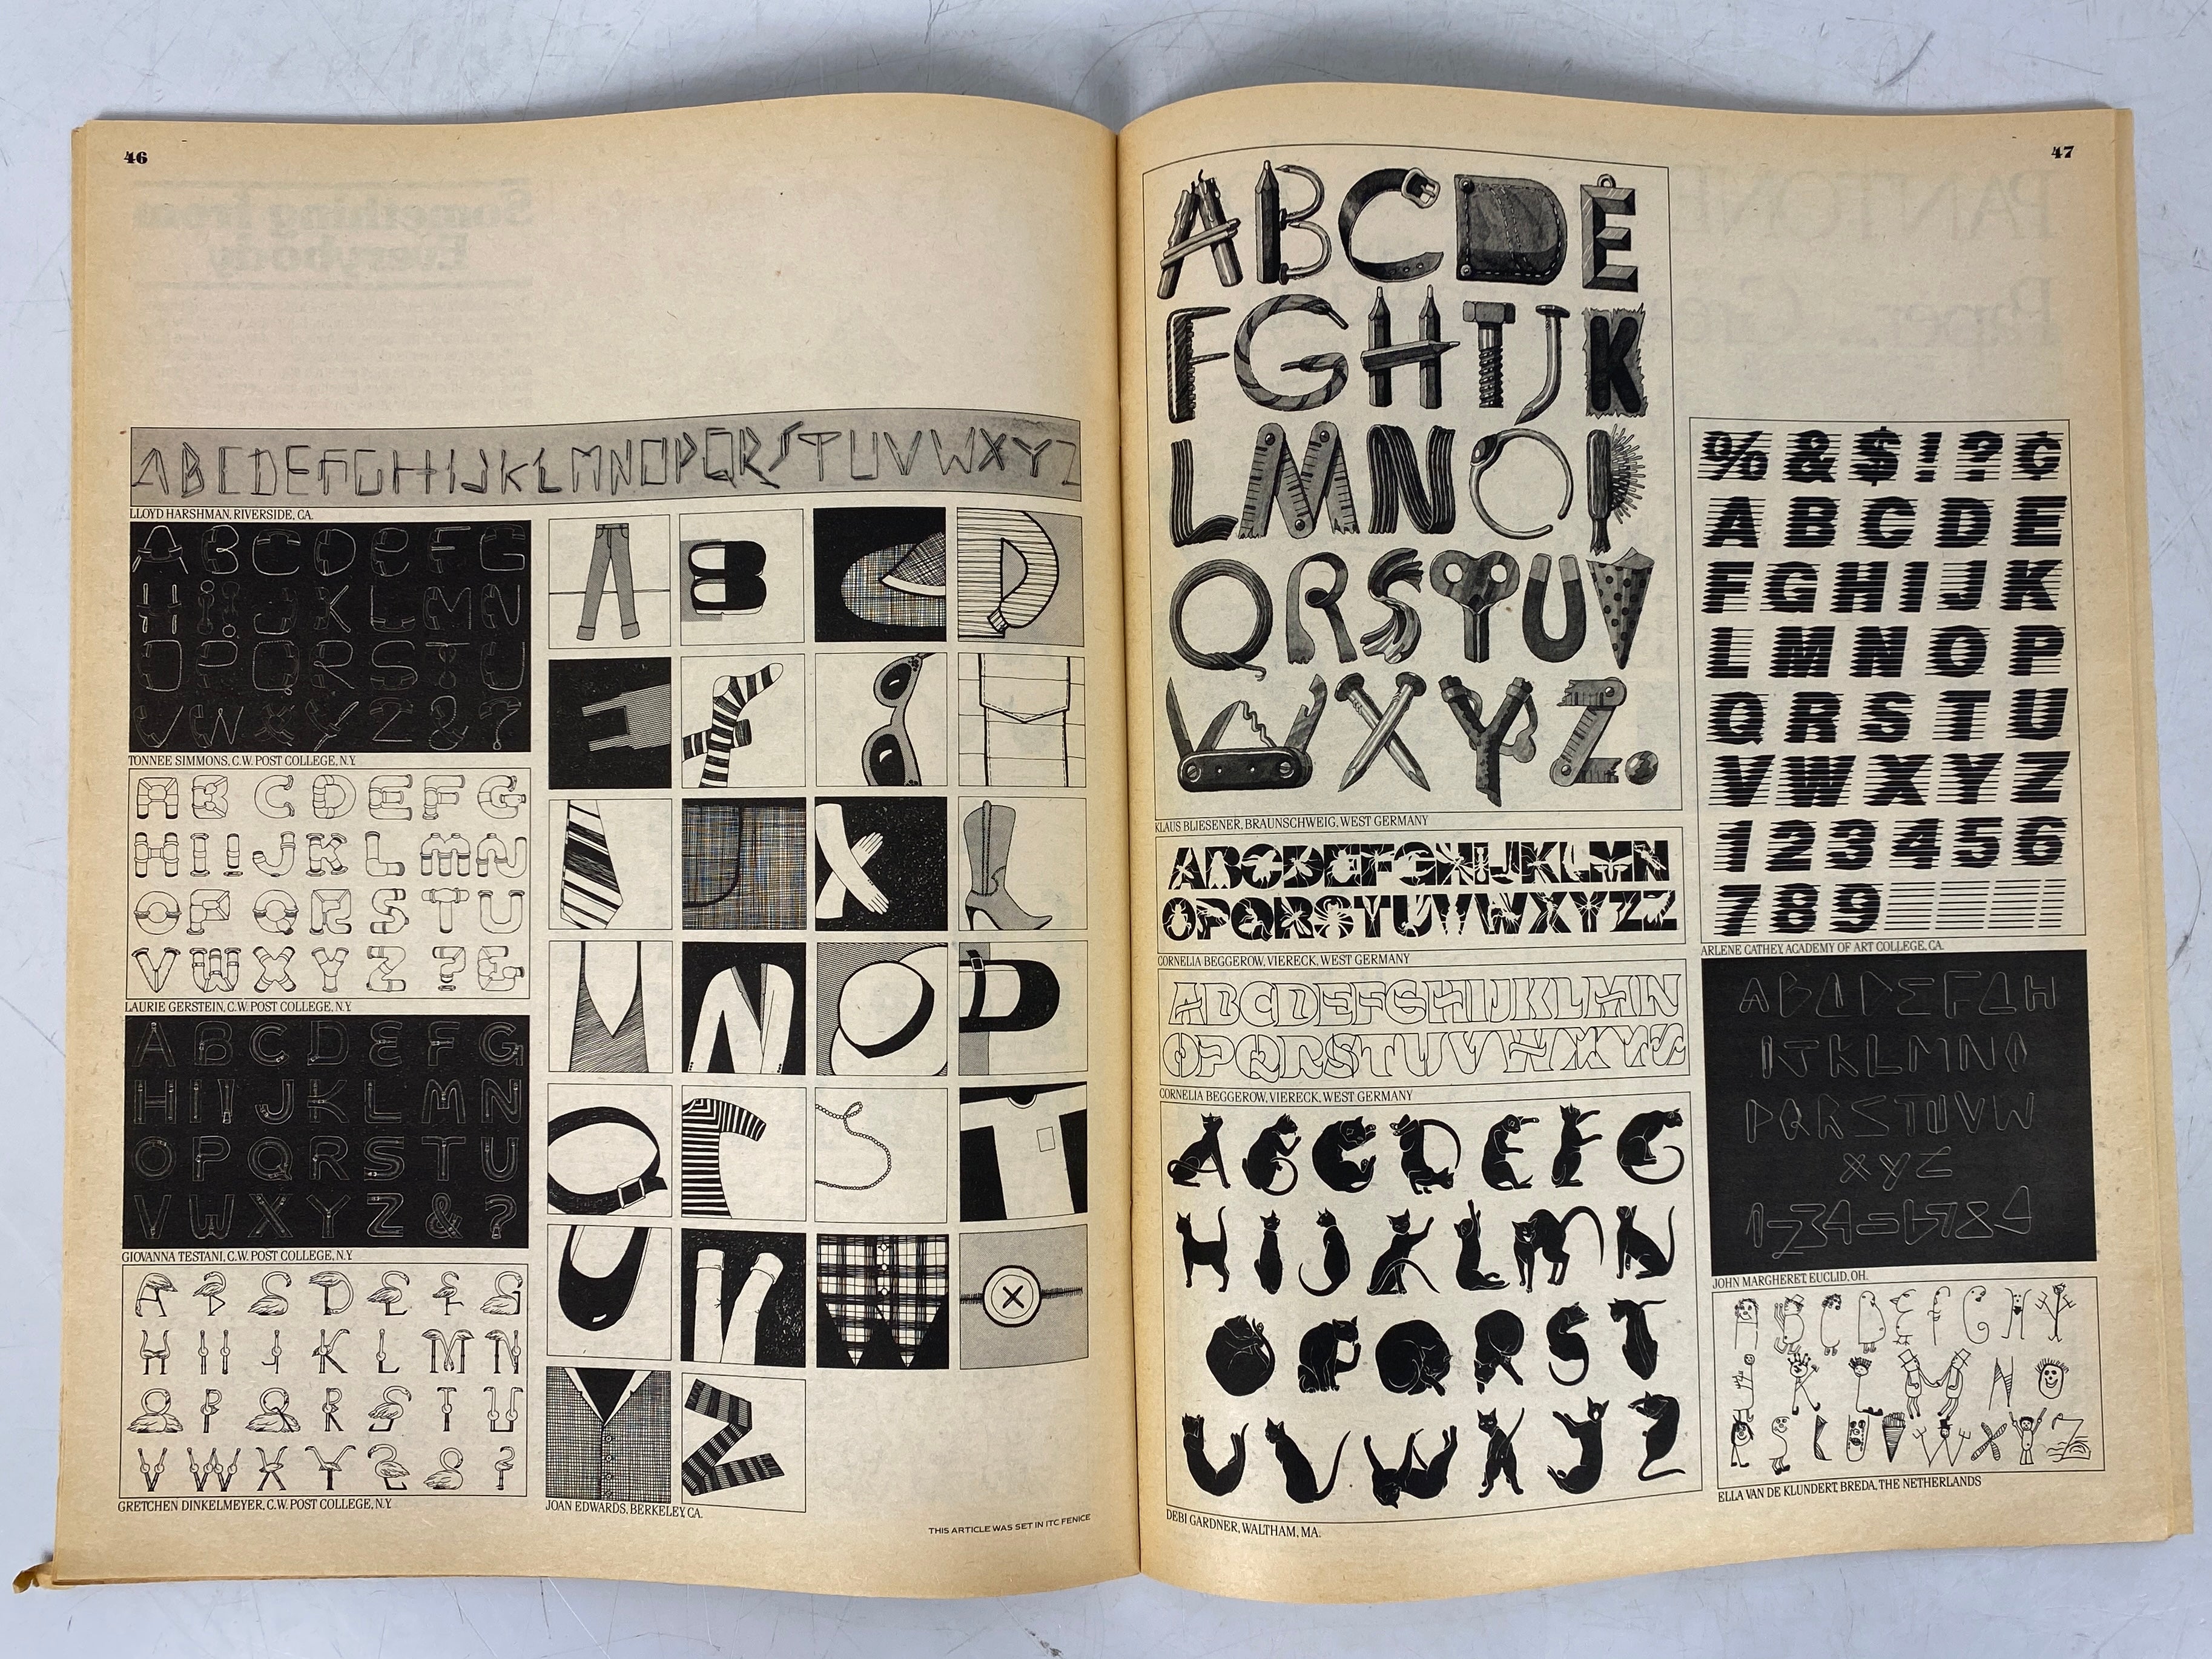 46
ABCDEFGHIJKLMNOPQRSTUVWXYZ
LLOYD HARSHMAN, RIVERSIDE, CA.
A B C D E F G
H I ! J K L M N
O P Q R S T U
V W X Y Z & ?
TONNEE SIMMONS, C.W. POST COLLEGE, N.Y.
A B C D E F G
H I ! J K L M N
O P Q R S T U
V W X Y Z ? &
LAURIE GERSTEIN, C.W. POST COLLEGE, N.Y.
A B C D E F G
H I ! J K L M N
O P Q R S T U
V W X Y Z & ?
GIOVANNA TESTANI, C.W. POST COLLEGE, N.Y.
A B C D E F G
H I J K L M N
O P Q R S T U
V W X Y Z & ?
GRETCHEN DINKELMEYER, C.W. POST COLLEGE, N.Y.
A B C D
E F G H
I J K L
M N O P
Q R S T
U V W X
Y Z
JOAN EDWARDS, BERKELEY, CA.
THIS ARTICLE WAS SET IN ITC FENICE
47
ABCDE
FGHIJK
LMNOP
QRSTUV
WXYZ.
KLAUS BLIESENER, BRAUNSCHWEIG, WEST GERMANY
ABCDEFGHIJKLMN
OPQRSTUVWXYZZ
CORNELIA BEGGEROW, VIERECK, WEST GERMANY
ABCDEFGHIJKLMN
OPQRSTUVWXYZ
CORNELIA BEGGEROW, VIERECK, WEST GERMANY
A B C D E F G
H I J K L M N
O P Q R S T
U V W X Y Z
DEBI GARDNER, WALTHAM, MA.
% & $ ! ? ¢
A B C D E
F G H I J K
L M N O P
Q R S T U
V W X Y Z
1 2 3 4 5 6
7 8 9
ARLENE CATHEY, ACADEMY OF ART COLLEGE, CA.
A B C D E F G H
I J K L M N O
P Q R S T U V W
X Y Z
JOHN MARGHERET, EUCLID, OH.
A B C D E F G H
J K L M N O
U V W X Y Z
ELLA VAN DE KLUNDERT, BREDA, THE NETHERLANDS